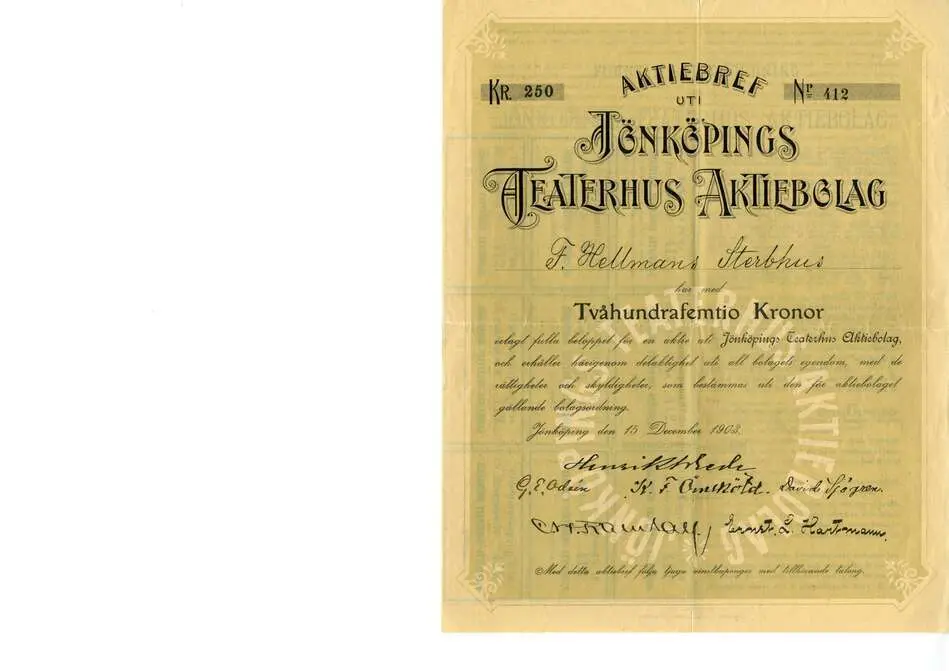 KR. 250
AKTIEBREF
Nr 412
UTI
JÖNKÖPINGS
TEATERHUS AKTIEBOLAG
F. Hellmans Sterbhus
har med
Tvåhundrafemtio Kronor
erlagt fulla beloppet för en aktie uti Jönköpings Teaterhus Aktiebolag,
och erhåller härigenom delaktighet uti all bolagets egendom, med de
rättigheter och skyldigheter, som bestämmas uti den för aktiebolaget
gällande bolagsordning.
Jönköping den 15 December 1903.
G. E. Odéen K. F. Örnsköld. David Sjögren.
Ernst. L. Hartmann.
Med detta aktiebref följa tjugo vinstkuponger med tillhörande talong.
JÖNKÖPINGS TEATERHUS AKTIEBOLAG